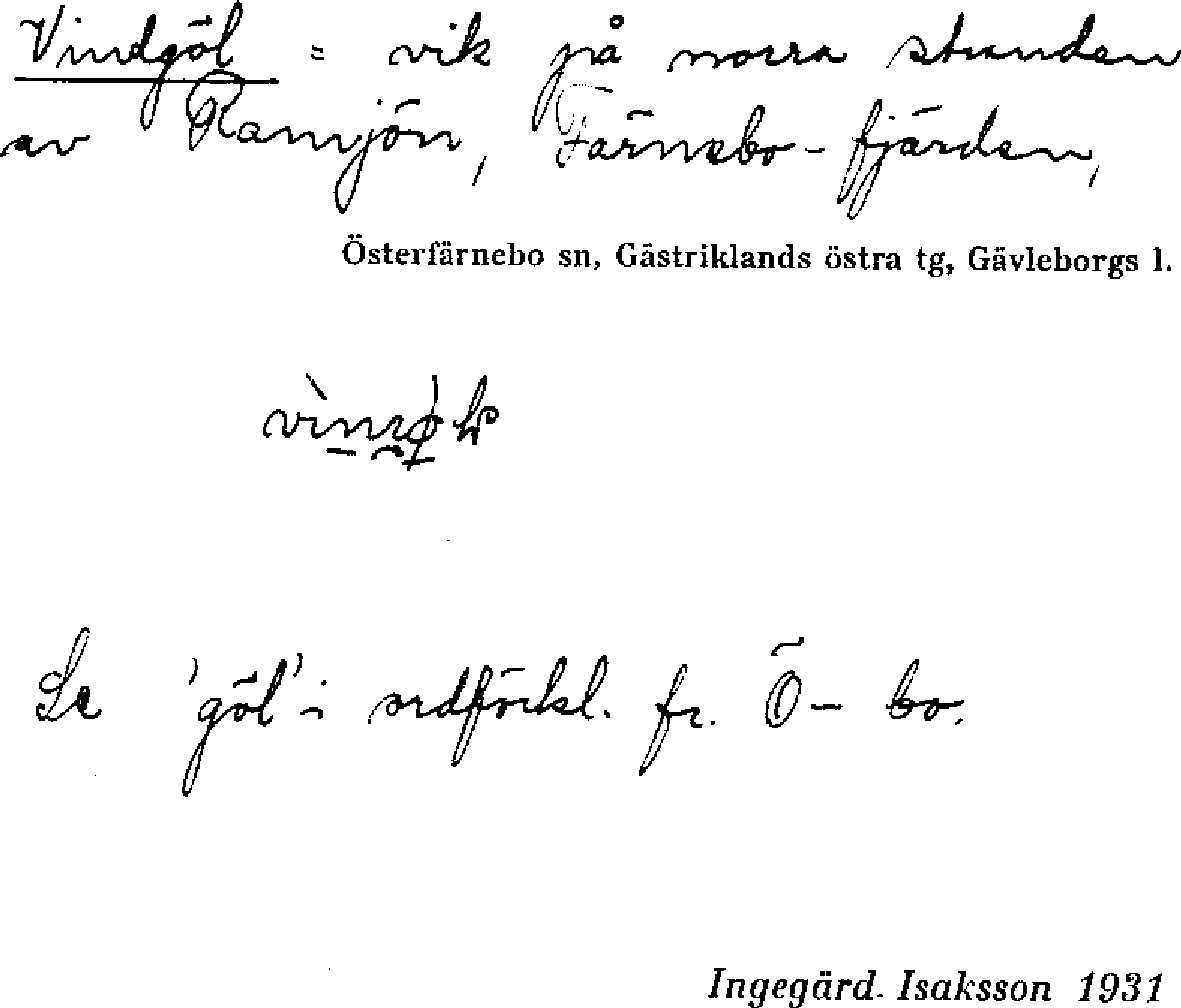 Vindgöl = vik på norra stranden
av Ramsjön, Färnebo-fjärden,
Österfärnebo sn, Gästriklands östra tg, Gävleborgs l.
Se 'göl' i ordförkl. fr. Ö-bo.
Ingegärd Isaksson 1931